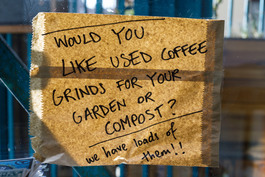 WOULD YOU
LIKE USED COFFEE
GRINDS FOR YOUR
GARDEN OR
COMPOST?
we have loads of
them!!